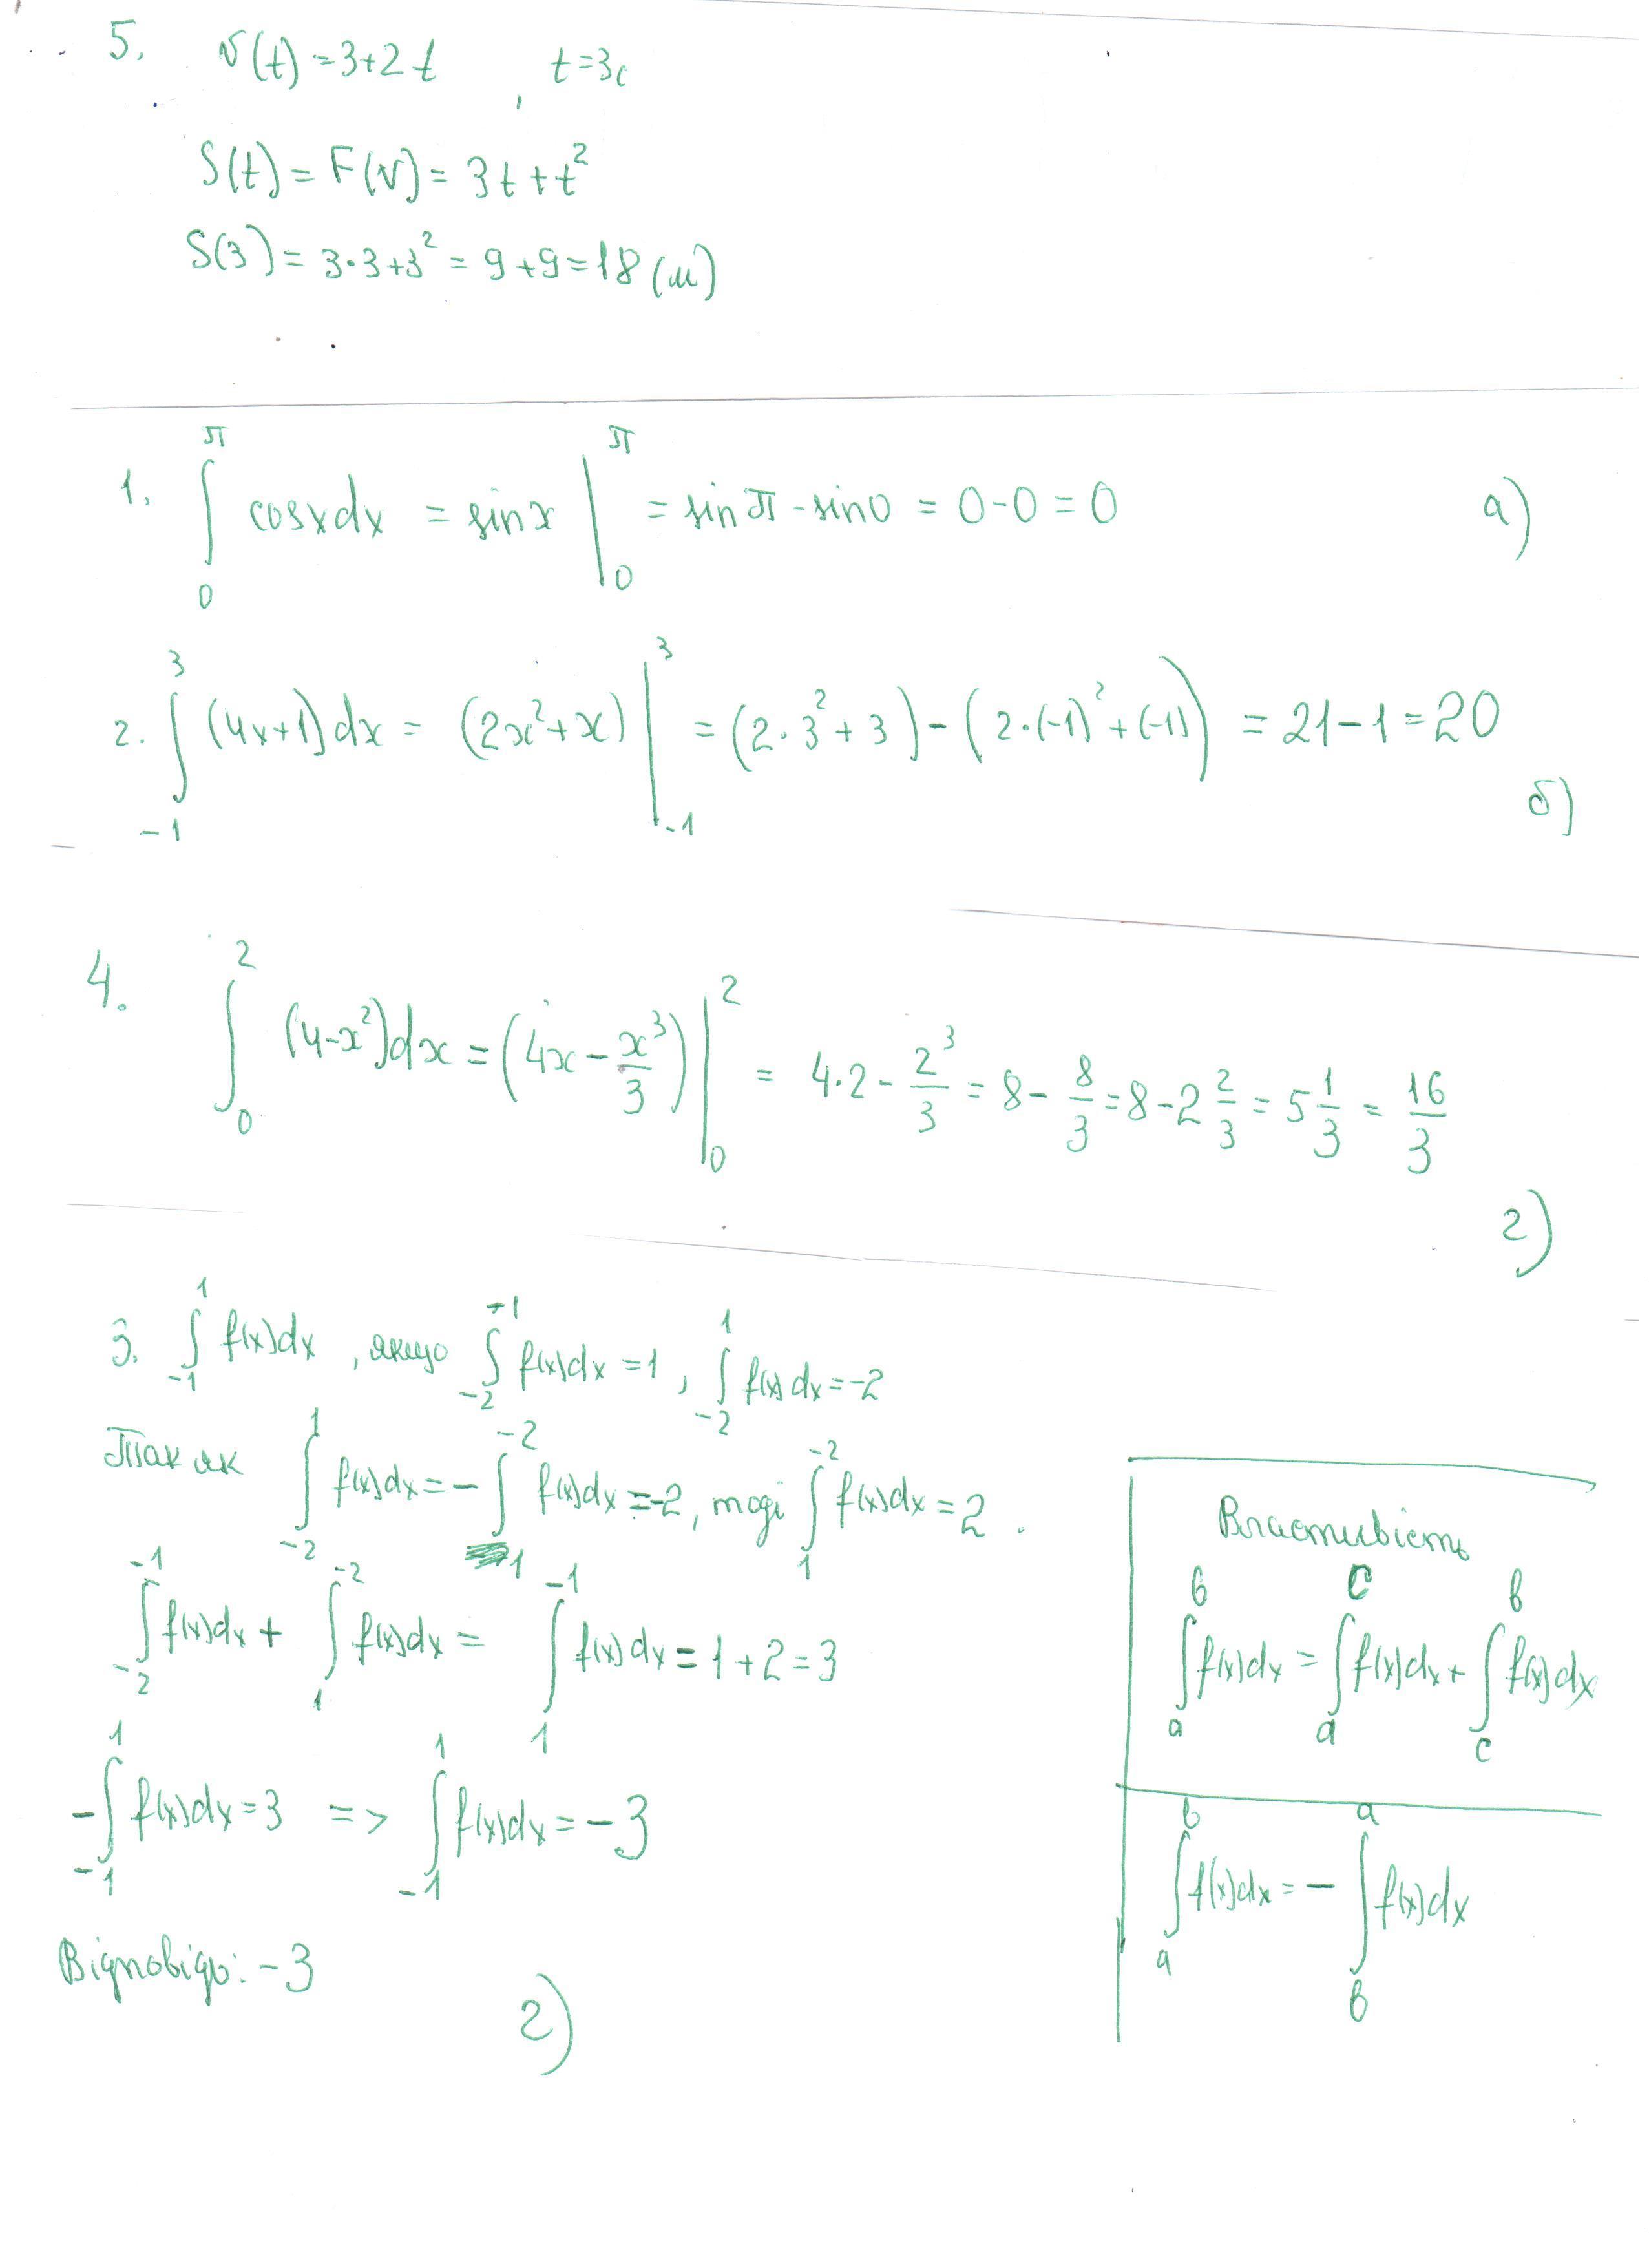 5. v(t) = 3+2t , t=3c
S(t) = F(v) = 3t + t²
S(3) = 3·3+3² = 9+9=18 (м)
1. ∫₀^π cosxdx = sinx |₀^π = sinπ - sin0 = 0-0 = 0 а)
2. ∫₋₁³ (4x+1)dx = (2x²+x) |₋₁³ = (2·3²+3) - (2·(-1)²+(-1)) = 21-1=20
б)
4. ∫₀² (4-x²)dx = (4x - x³/3) |₀² = 4·2 - 2³/3 = 8 - 8/3 = 8 - 2 2/3 = 5 1/3 = 16/3
г)
3. ∫₋₁¹ f(x)dx , якщо ∫₋₂⁻¹ f(x)dx = 1, ∫₋₂¹ f(x)dx = -2
Так як ∫₋₂¹ f(x)dx = - ∫₁⁻² f(x)dx = -2, тоді ∫₁⁻² f(x)dx = 2 .
∫₋₂⁻¹ f(x)dx + ∫₁⁻² f(x)dx = ∫₁⁻¹ f(x)dx = 1+2=3
-∫₋₁¹ f(x)dx = 3 => ∫₋₁¹ f(x)dx = -3
Відповідь: -3
г)
Властивість
∫ₐᵇ f(x)dx = ∫ₐᶜ f(x)dx + ∫꜀ᵇ f(x)dx
∫ₐᵇ f(x)dx = - ∫ᵦᵃ f(x)dx